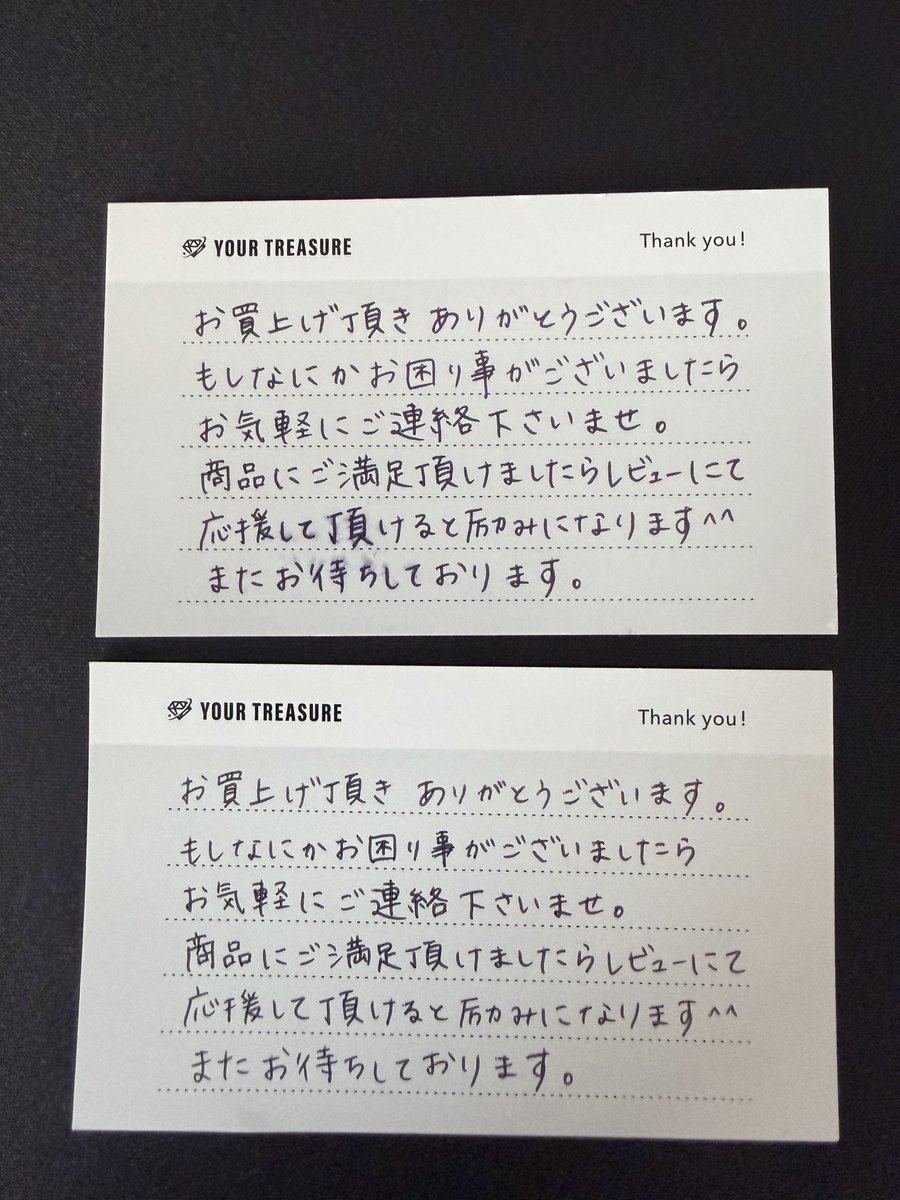 YOUR TREASURE
Thank you!
お買上げ頂き ありがとうございます。
もしなにかお困り事がございましたら
お気軽にご連絡下さいませ。
商品にご満足頂けましたらレビューにて
応援して頂けると励みになります^^
またお待ちしております。
YOUR TREASURE
Thank you!
お買上げ頂き ありがとうございます。
もしなにかお困り事がございましたら
お気軽にご連絡下さいませ。
商品にご満足頂けましたらレビューにて
応援して頂けると励みになります^^
またお待ちしております。